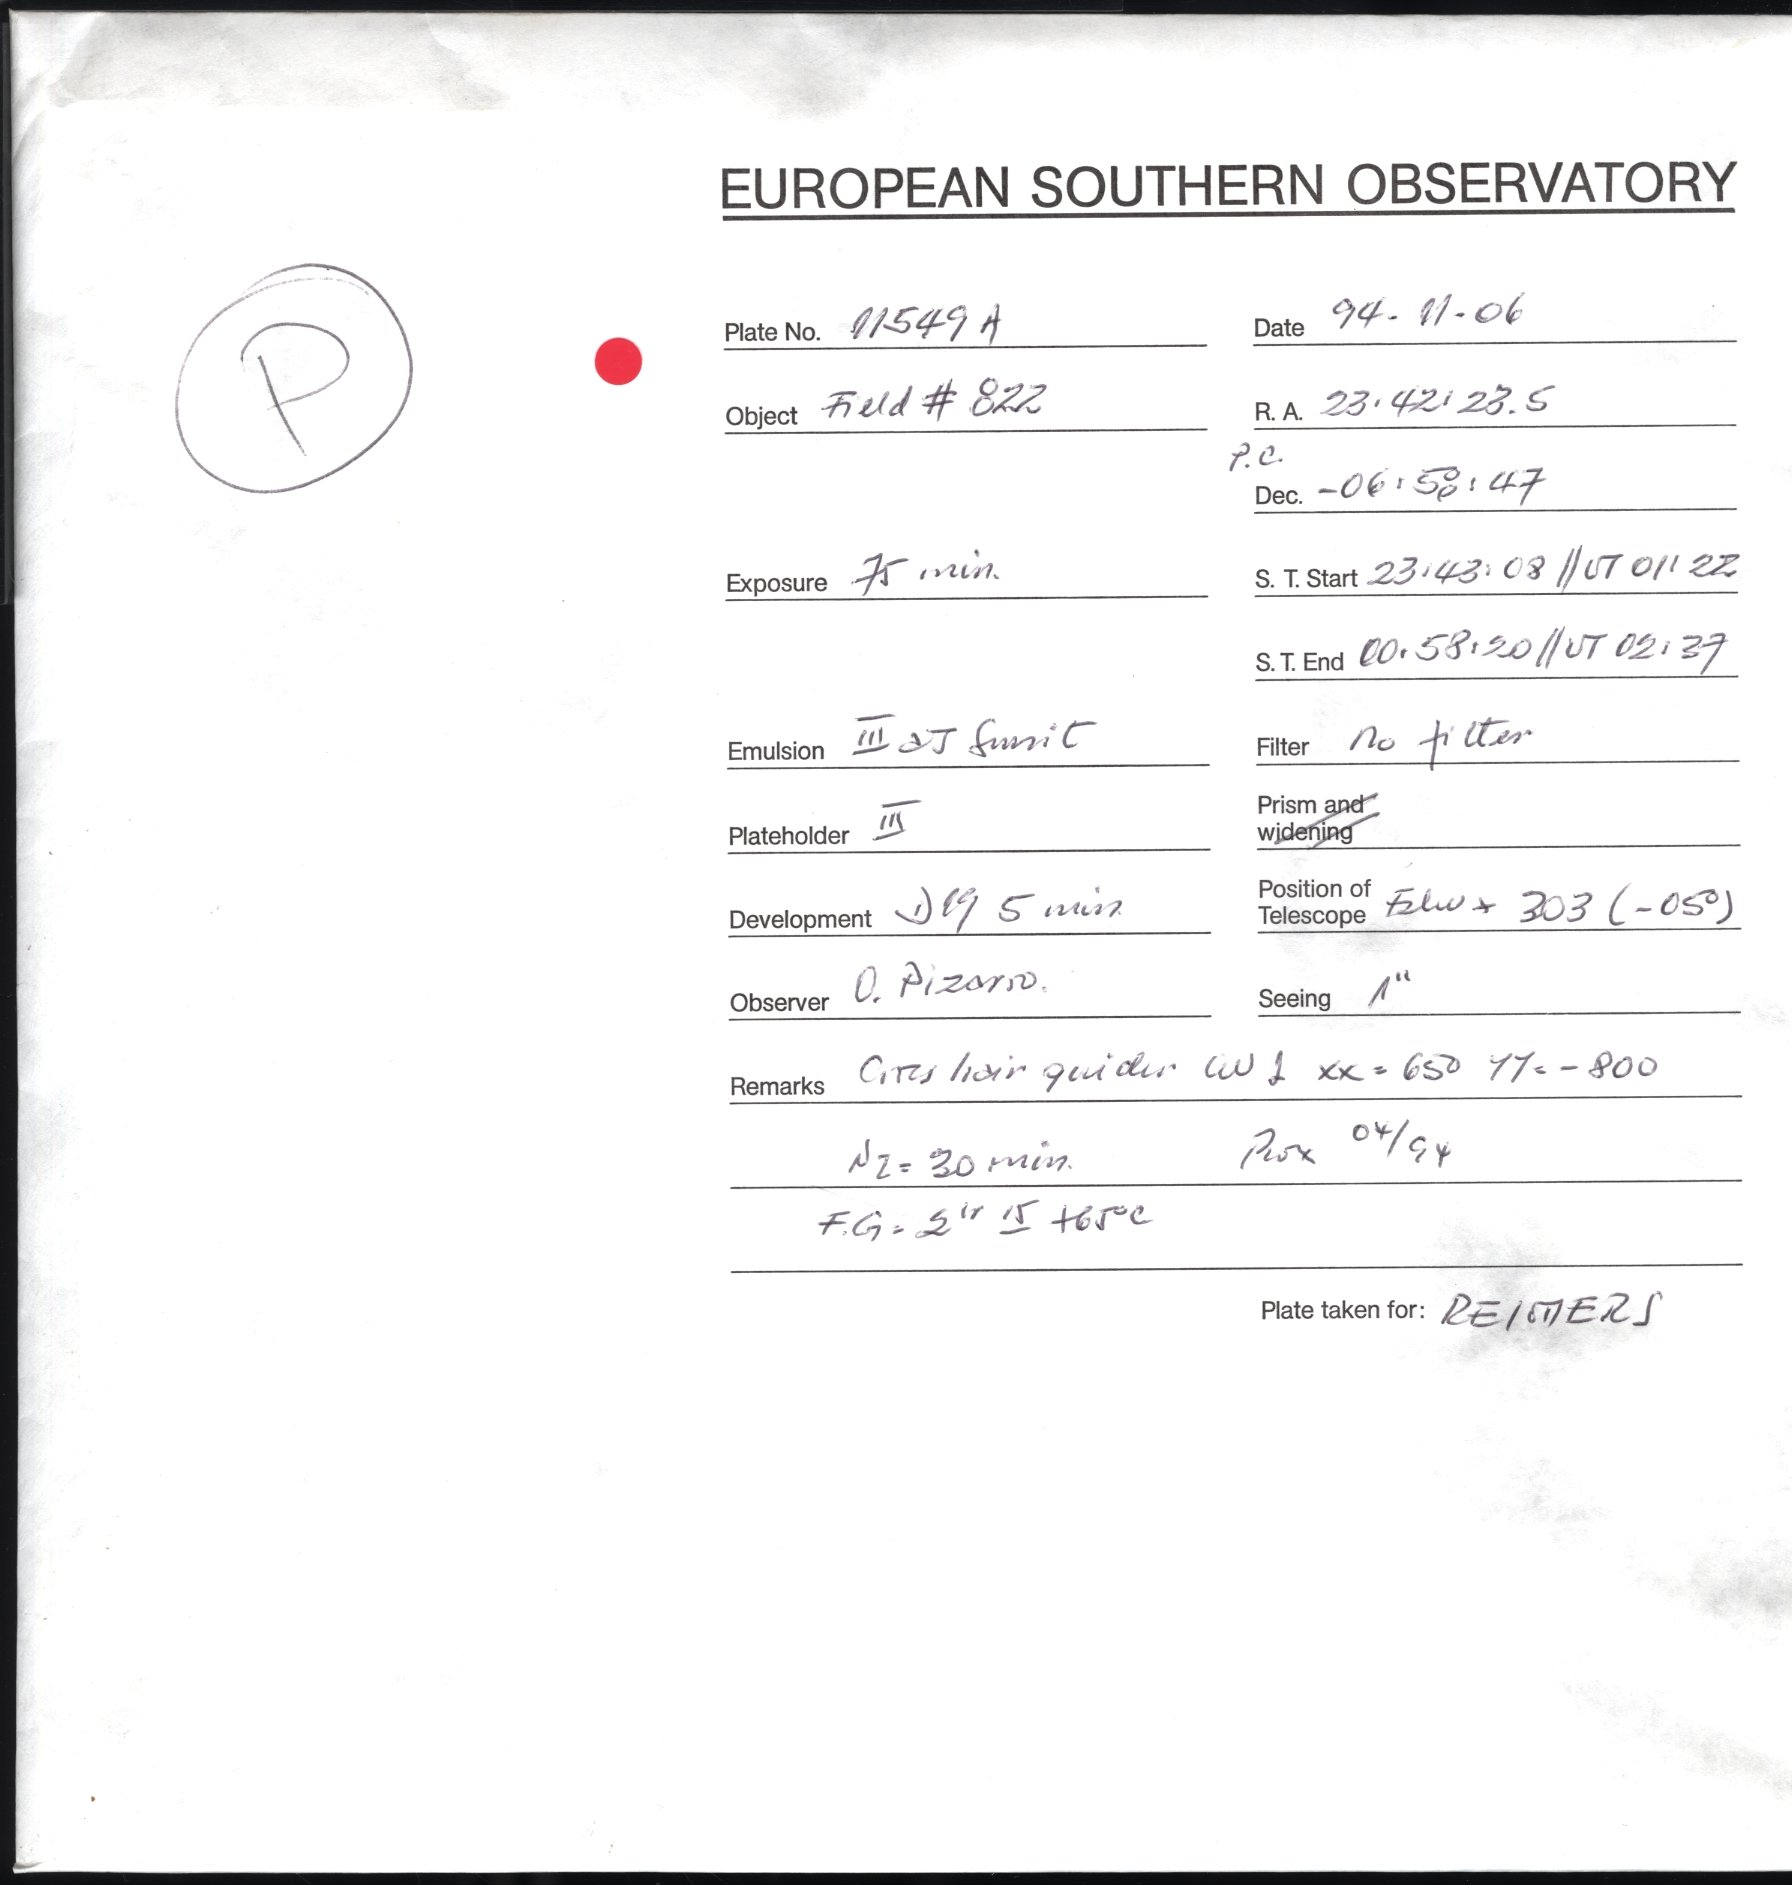 EUROPEAN SOUTHERN OBSERVATORY
P
Plate No. 11549 A
Date 94-11-06
Object Field # 822
R. A. 23:42:23.5
P.C.
Dec. -06:58:47
Exposure 75 min.
S. T. Start 23:43:08 // UT 01:22
S. T. End 00:58:20 // UT 02:37
Emulsion III aJ
Filter no filter
Plateholder III
Prism and widening
Development D19 5 min
Position of Telescope 303 (-05°)
Observer O. Pizarro.
Seeing 1"
Remarks Cross hair guider xx = 650 YY = -800
N2 = 30 min. 04/94
F.G. = +65°C
Plate taken for: REIMERS